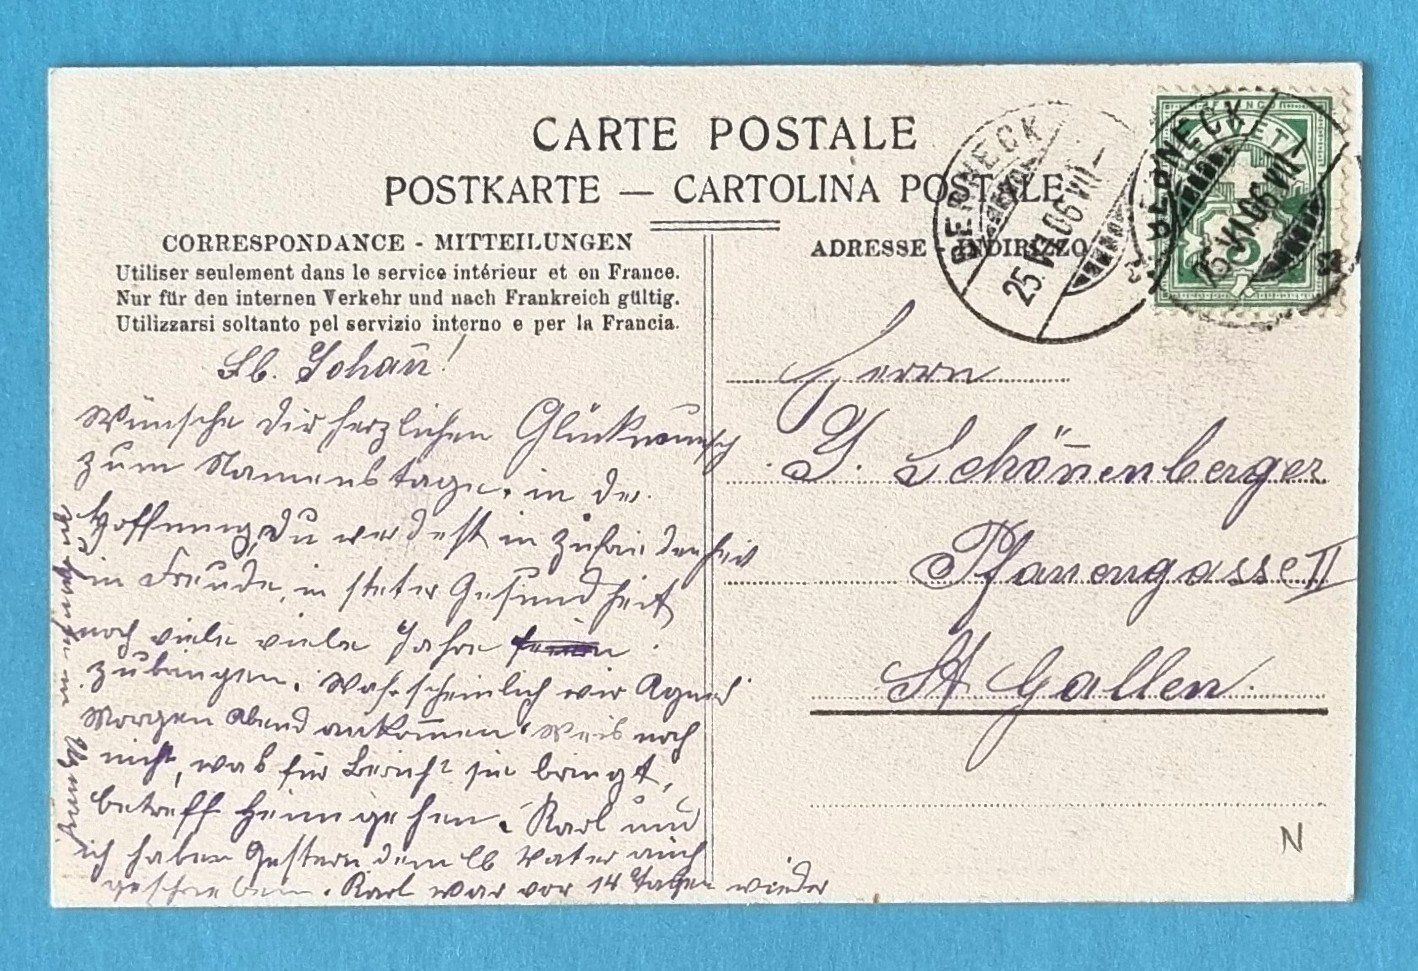 CARTE POSTALE
POSTKARTE — CARTOLINA POSTALE
CORRESPONDANCE - MITTEILUNGEN
Utiliser seulement dans le service intérieur et en France.
Nur für den internen Verkehr und nach Frankreich gültig.
Utilizzarsi soltanto pel servizio interno e per la Francia.
Lb. Johañ!
Wünsche Dir herzlichen Glückwunsch
zum Namenstage, in der
Hoffnung, Du werdest in Zufriedenheit
in Freude, in steter Gesundheit
noch viele viele Jahre
zubringen. Wahrscheinlich wir Agnes
Morgen Abend ankom̄en. Weis noch
nicht, was für Bericht sie bringt,
betreff Heimgehen. Karl und
ich haben Gestern dem lb Vater auch
geschrieben. Karl war vor 14 Tagen wieder
ADRESSE - INDIRIZZO
Herrn
J. Schön̄enberger
Pfanengasse II
St Gallen.
BERNECK
25.VI.06.VII-
BERNECK
25.VI.06.VII-
HELVETIA
5
N